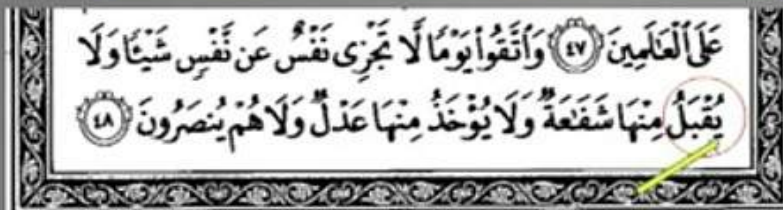 عَلَى ٱلْعَٰلَمِينَ ٤٧ وَٱتَّقُوا۟ يَوْمًا لَّا تَجْزِى نَفْسٌ عَن نَّفْسٍ شَيْـًٔا وَلَا
يُقْبَلُ مِنْهَا شَفَٰعَةٌ وَلَا يُؤْخَذُ مِنْهَا عَدْلٌ وَلَا هُمْ يُنصَرُونَ ٤٨